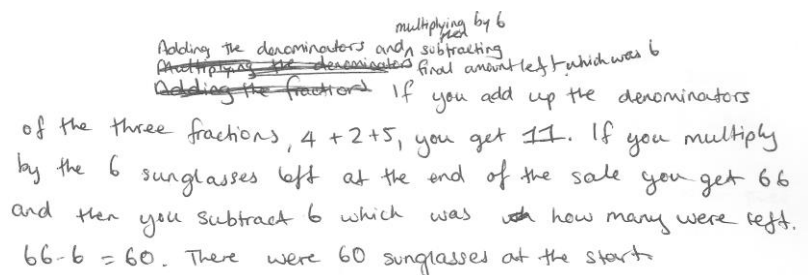 multiplying by 6
Adding the denominators and then subtracting
Multiplying the denominators final amount left which was 6
Adding the fractions If you add up the denominators
of the three fractions, 4 + 2 + 5, you get 11. If you multiply
by the 6 sunglasses left at the end of the sale you get 66
and then you subtract 6 which was how many were left.
66 - 6 = 60. There were 60 sunglasses at the start.